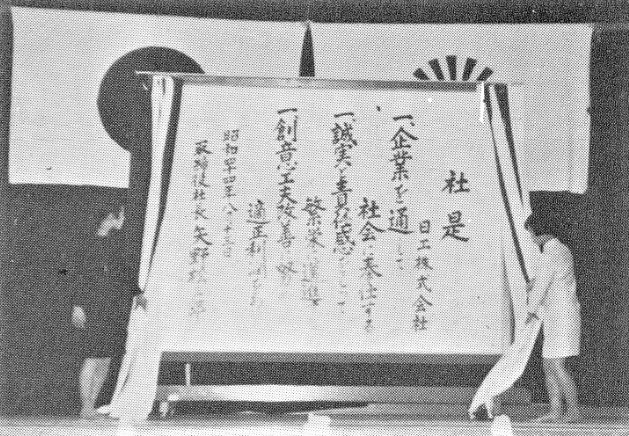 社是
日工株式会社
一、企業を通して
社会に奉仕する
一、誠実と責任感をもって
繁栄に邁進
一、創意工夫改善に努め
適正利
昭和四十四年八月十三日
取締役社長 矢野松三郎